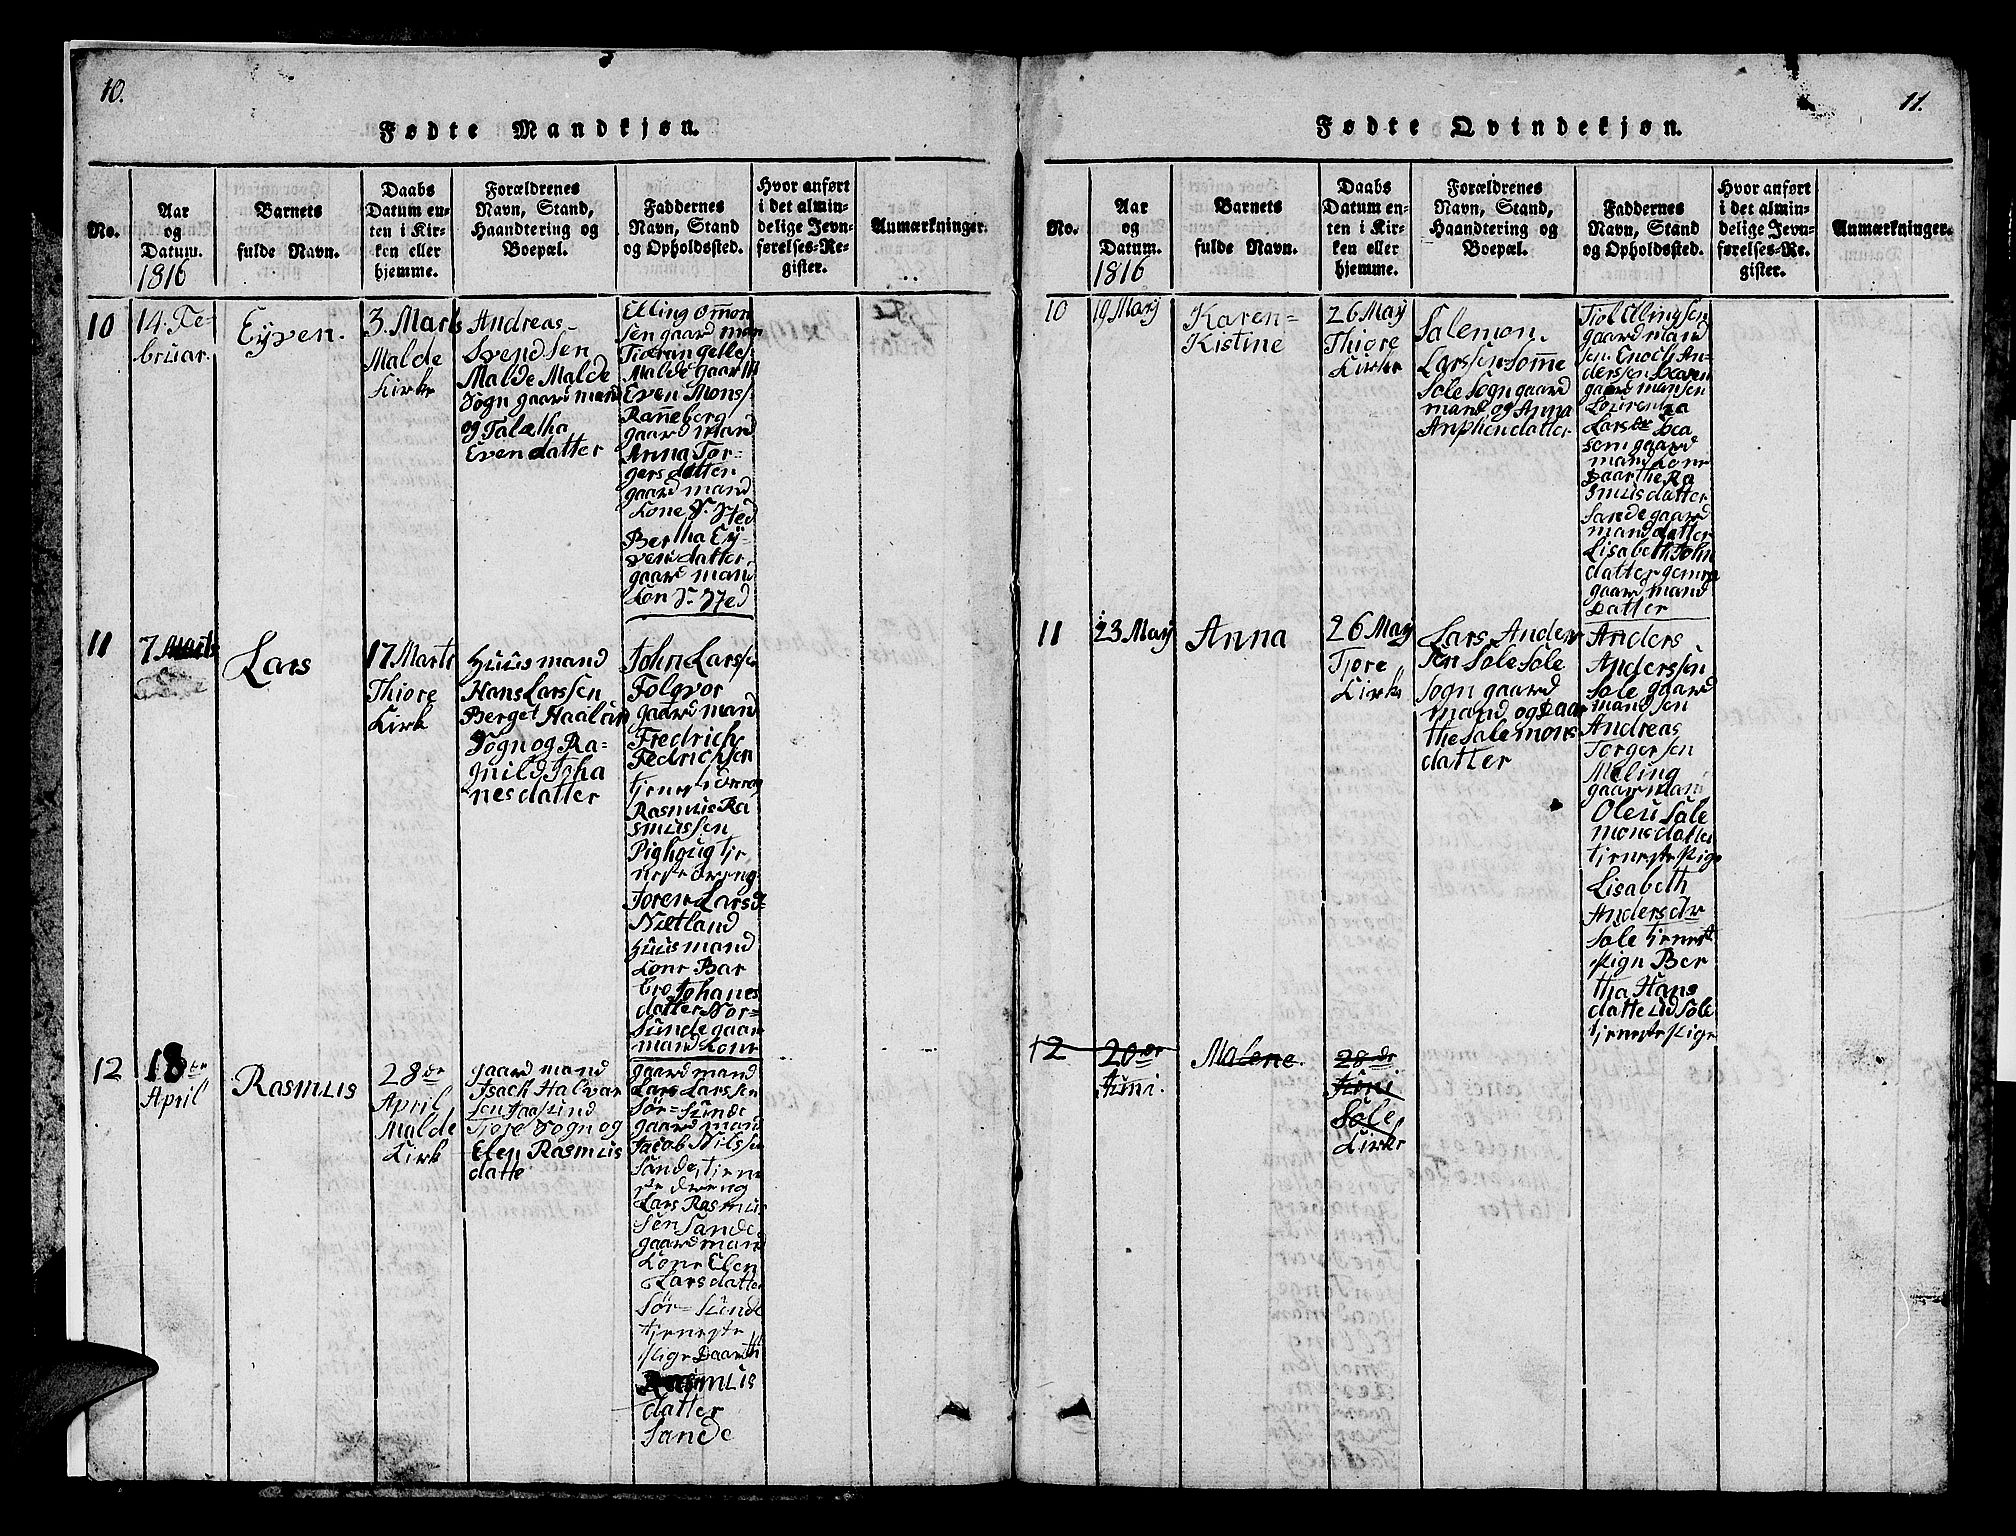 10.
Fødte Mandkjøn.
No.
Aar
og
Datum.
1816
Barnets
fulde Navn.
Daabs
Datum en-
ten i Kir-
ken eller
hjemme.
Forældrenes
Navn, Stand,
Haandtering og
Boepæl.
Faddernes
Navn, Stand
og Opholdssted.
Hvor anført
i det almin-
delige Jevn-
førelses-Re-
gister.
Anmærkninger.
10
14. Fe-
bruar.
Eyven.
3. Marts
Malde
Kirke
Andreas
Svendsen
Malde Malde
Sogn gaard mand
og Talætha
Evendatter
Elling Omon
sen gaard man
Malde Gaard
Even Monss.
Ranneberg
gaard mand
Anna Tor-
gersdatter
gaard mand
Kone S. Sted
Bertha Ey-
vendatter
gaard mand
Kon S. Sted
11
7 Marts
Lars
17 Marti
Thiore
Kirk
Huusmand
Hans Larssen
Berget Haalan
Sogn og Ra-
gnild Joha
nesdatter
John Larss
Folqvor
gaard mand
Fredrich
Fedrichsen
Rasmus Ra
smussen
tje
neste dreng
Joren Larsd
Nætland
Huusmand
Kone Bar
bro Johanes
datter Nor-
Sunde gaar
mand Kone
12
18de
April
Rasmus
28de
April
Malde
Kirk
gaard mand
Isach Halvar
sen Jaasund
Tjore Sogn og
Elen Rasmus
datte
gaard mand
Lars Larssen
Sör-Sunde
gaard mand
Jacob Nilssen
Sande, tjene
ste dreng
Lars Rasmus
sen Sande
gaard mand
Kone Elen
Larsdatter
Sör-Sunde
tjeneste
Pige Daarthe
Rasmus
datter
Sande
11.
Fødte Qvindekjøn.
No.
Aar
og
Datum.
1816
Barnets
fulde Navn.
Daabs
Datum en-
ten i Kir-
ken eller
hjemme.
Forældrenes
Navn, Stand,
Haandtering og
Boepæl.
Faddernes
Navn, Stand
og Opholdssted.
Hvor anført
i det almin-
delige Jevn-
førelses-Re-
gister.
Anmærkninger.
10
19 May
Karen=
Kistine
26 May
Thiore
Kirke
Salemon
Larssen Somme
Sole Sogn gaard
mand og Anna
datter
gaard mand
sen. Enoch An-
derssen
gaard mansen
Lars
som gaard
mand Kone
Daarthe Ra
smusdatter
Sande gaard
mand datter
Lisabeth John
datter
gaard mand
Datter
11
23 May
Anna
26 May
Tjore
Kirke
Lars Ander
sen Sole Sole
Sogn gaard
mand og Daar
the Salemons
datter
Anders
Anderssen
Sole gaard
mand sen
Andreas
Torgersen
Meling
gaar mand
Oleu Sale
monsdatter
tjeneste Pige
Lisabeth
Andersdr
Sole tjenest
Pign Ber
tha Hans
datte ud Sole
tjeneste Pige
12
20de
Juni.
Malene.
28de
Juni
Sole
Kirke